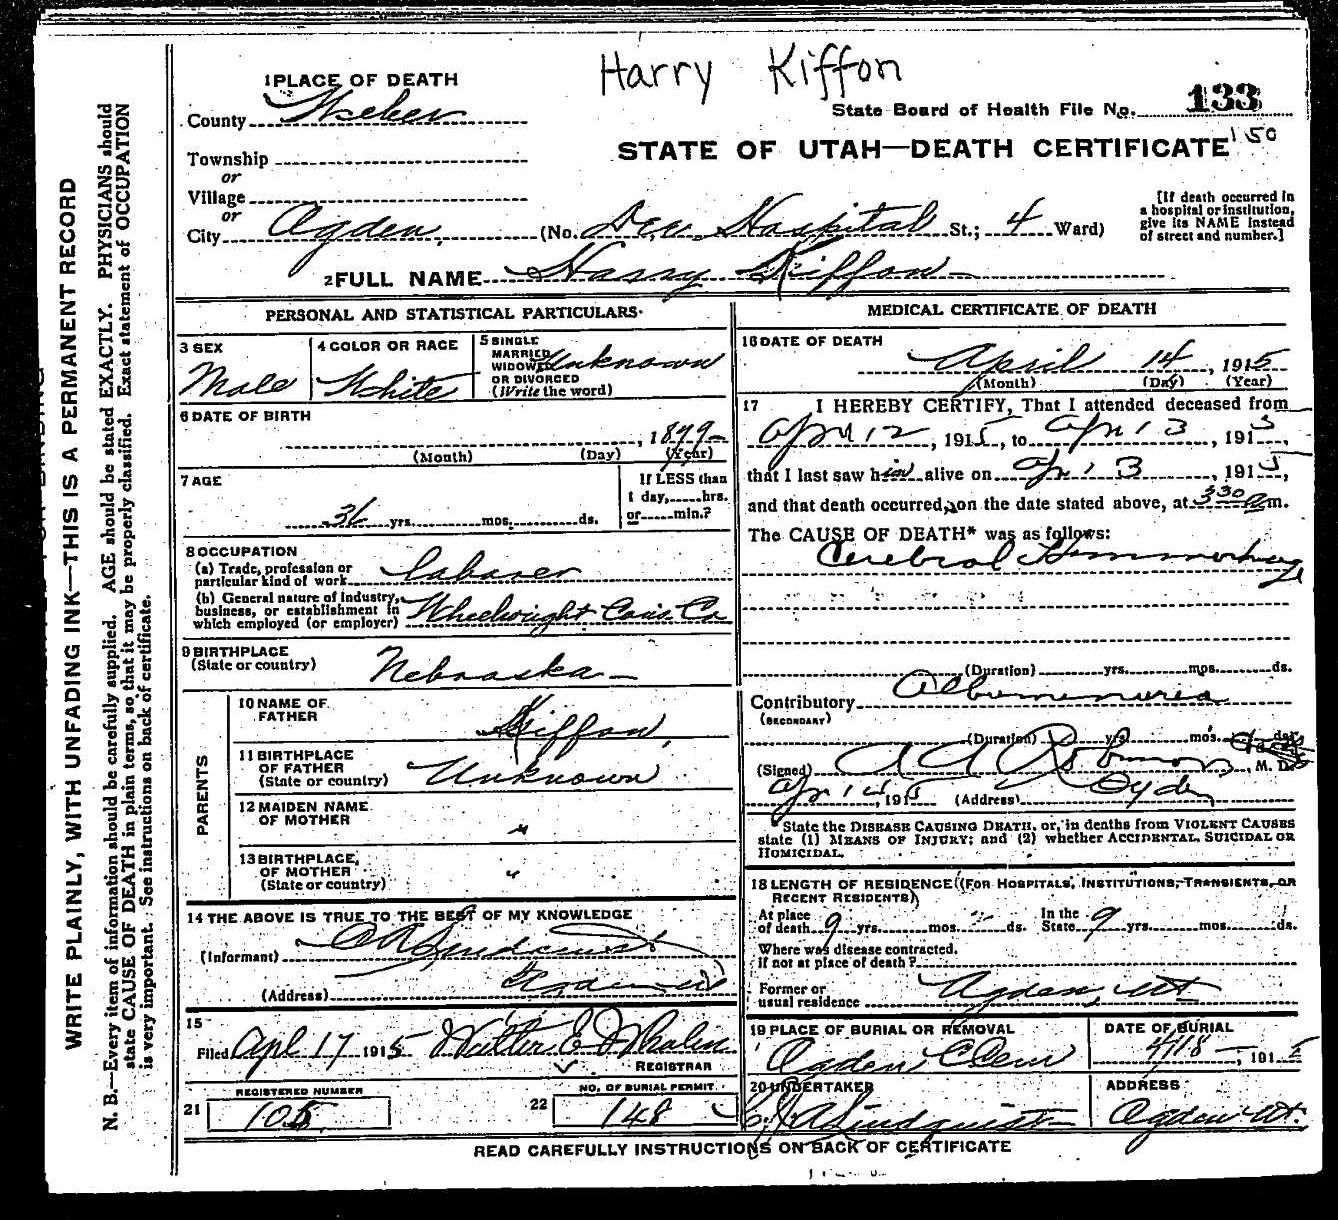 Harry Kiffon
1 PLACE OF DEATH
County Weber
State Board of Health File No. 133
150
STATE OF UTAH—DEATH CERTIFICATE
Township
or
Village
or
City Ogden (No. Dee Hospital St.; 4 Ward)
[If death occurred in
a hospital or institution,
give its NAME instead
of street and number.]
2 FULL NAME Harry Kiffon
PERSONAL AND STATISTICAL PARTICULARS
3 SEX
Male
4 COLOR OR RACE
White
5 SINGLE
MARRIED
WIDOWED
OR DIVORCED
(Write the word)
Unknown
6 DATE OF BIRTH
, 1879
(Month) (Day) (Year)
7 AGE
36 yrs. mos. ds.
If LESS than
1 day, hrs.
or min.?
8 OCCUPATION
(a) Trade, profession or
particular kind of work Laborer
(b) General nature of industry,
business, or establishment in
which employed (or employer) Wheelwright Cons. Co
9 BIRTHPLACE
(State or country) Nebraska
PARENTS
10 NAME OF
FATHER Kiffon
11 BIRTHPLACE
OF FATHER
(State or country) Unknown
12 MAIDEN NAME
OF MOTHER "
13 BIRTHPLACE
OF MOTHER
(State or country) "
14 THE ABOVE IS TRUE TO THE BEST OF MY KNOWLEDGE
(Informant) Lindquist
(Address) Ogden
15
Filed Apl 17 1915 Walter E Whalen
REGISTRAR
REGISTERED NUMBER
21 105
NO. OF BURIAL PERMIT
22 148
MEDICAL CERTIFICATE OF DEATH
16 DATE OF DEATH
April 14, 1915
(Month) (Day) (Year)
17 I HEREBY CERTIFY, That I attended deceased from
Apr 12, 1915, to Apr 13, 1915,
that I last saw him alive on Apr 13, 1915,
and that death occurred, on the date stated above, at 3 30 a m.
The CAUSE OF DEATH* was as follows:
Cerebral Hemmorhage
(Duration) yrs. mos. ds.
Contributory Albumenuria
(SECONDARY)
(Duration) yrs. mos. ds.
(Signed) , M. D.
Apr 14, 1915 (Address) Ogden
*State the DISEASE CAUSING DEATH, or, in deaths from VIOLENT CAUSES
state (1) MEANS OF INJURY; and (2) whether ACCIDENTAL, SUICIDAL OR
HOMICIDAL.
18 LENGTH OF RESIDENCE (FOR HOSPITALS, INSTITUTIONS, TRANSIENTS, OR
RECENT RESIDENTS)
At place
of death 9 yrs. mos. ds.
In the
State 9 yrs. mos. ds.
Where was disease contracted.
if not at place of death?
Former or
usual residence Ogden, Ut
19 PLACE OF BURIAL OR REMOVAL
Ogden Cem
DATE OF BURIAL
4/18, 1915
20 UNDERTAKER
Lindquist
ADDRESS
Ogden Ut.
READ CAREFULLY INSTRUCTIONS ON BACK OF CERTIFICATE
WRITE PLAINLY, WITH UNFADING INK—THIS IS A PERMANENT RECORD
N. B.—Every item of information should be carefully supplied. AGE should be stated EXACTLY. PHYSICIANS should
state CAUSE OF DEATH in plain terms, so that it may be properly classified. Exact statement of OCCUPATION
is very important. See instructions on back of certificate.